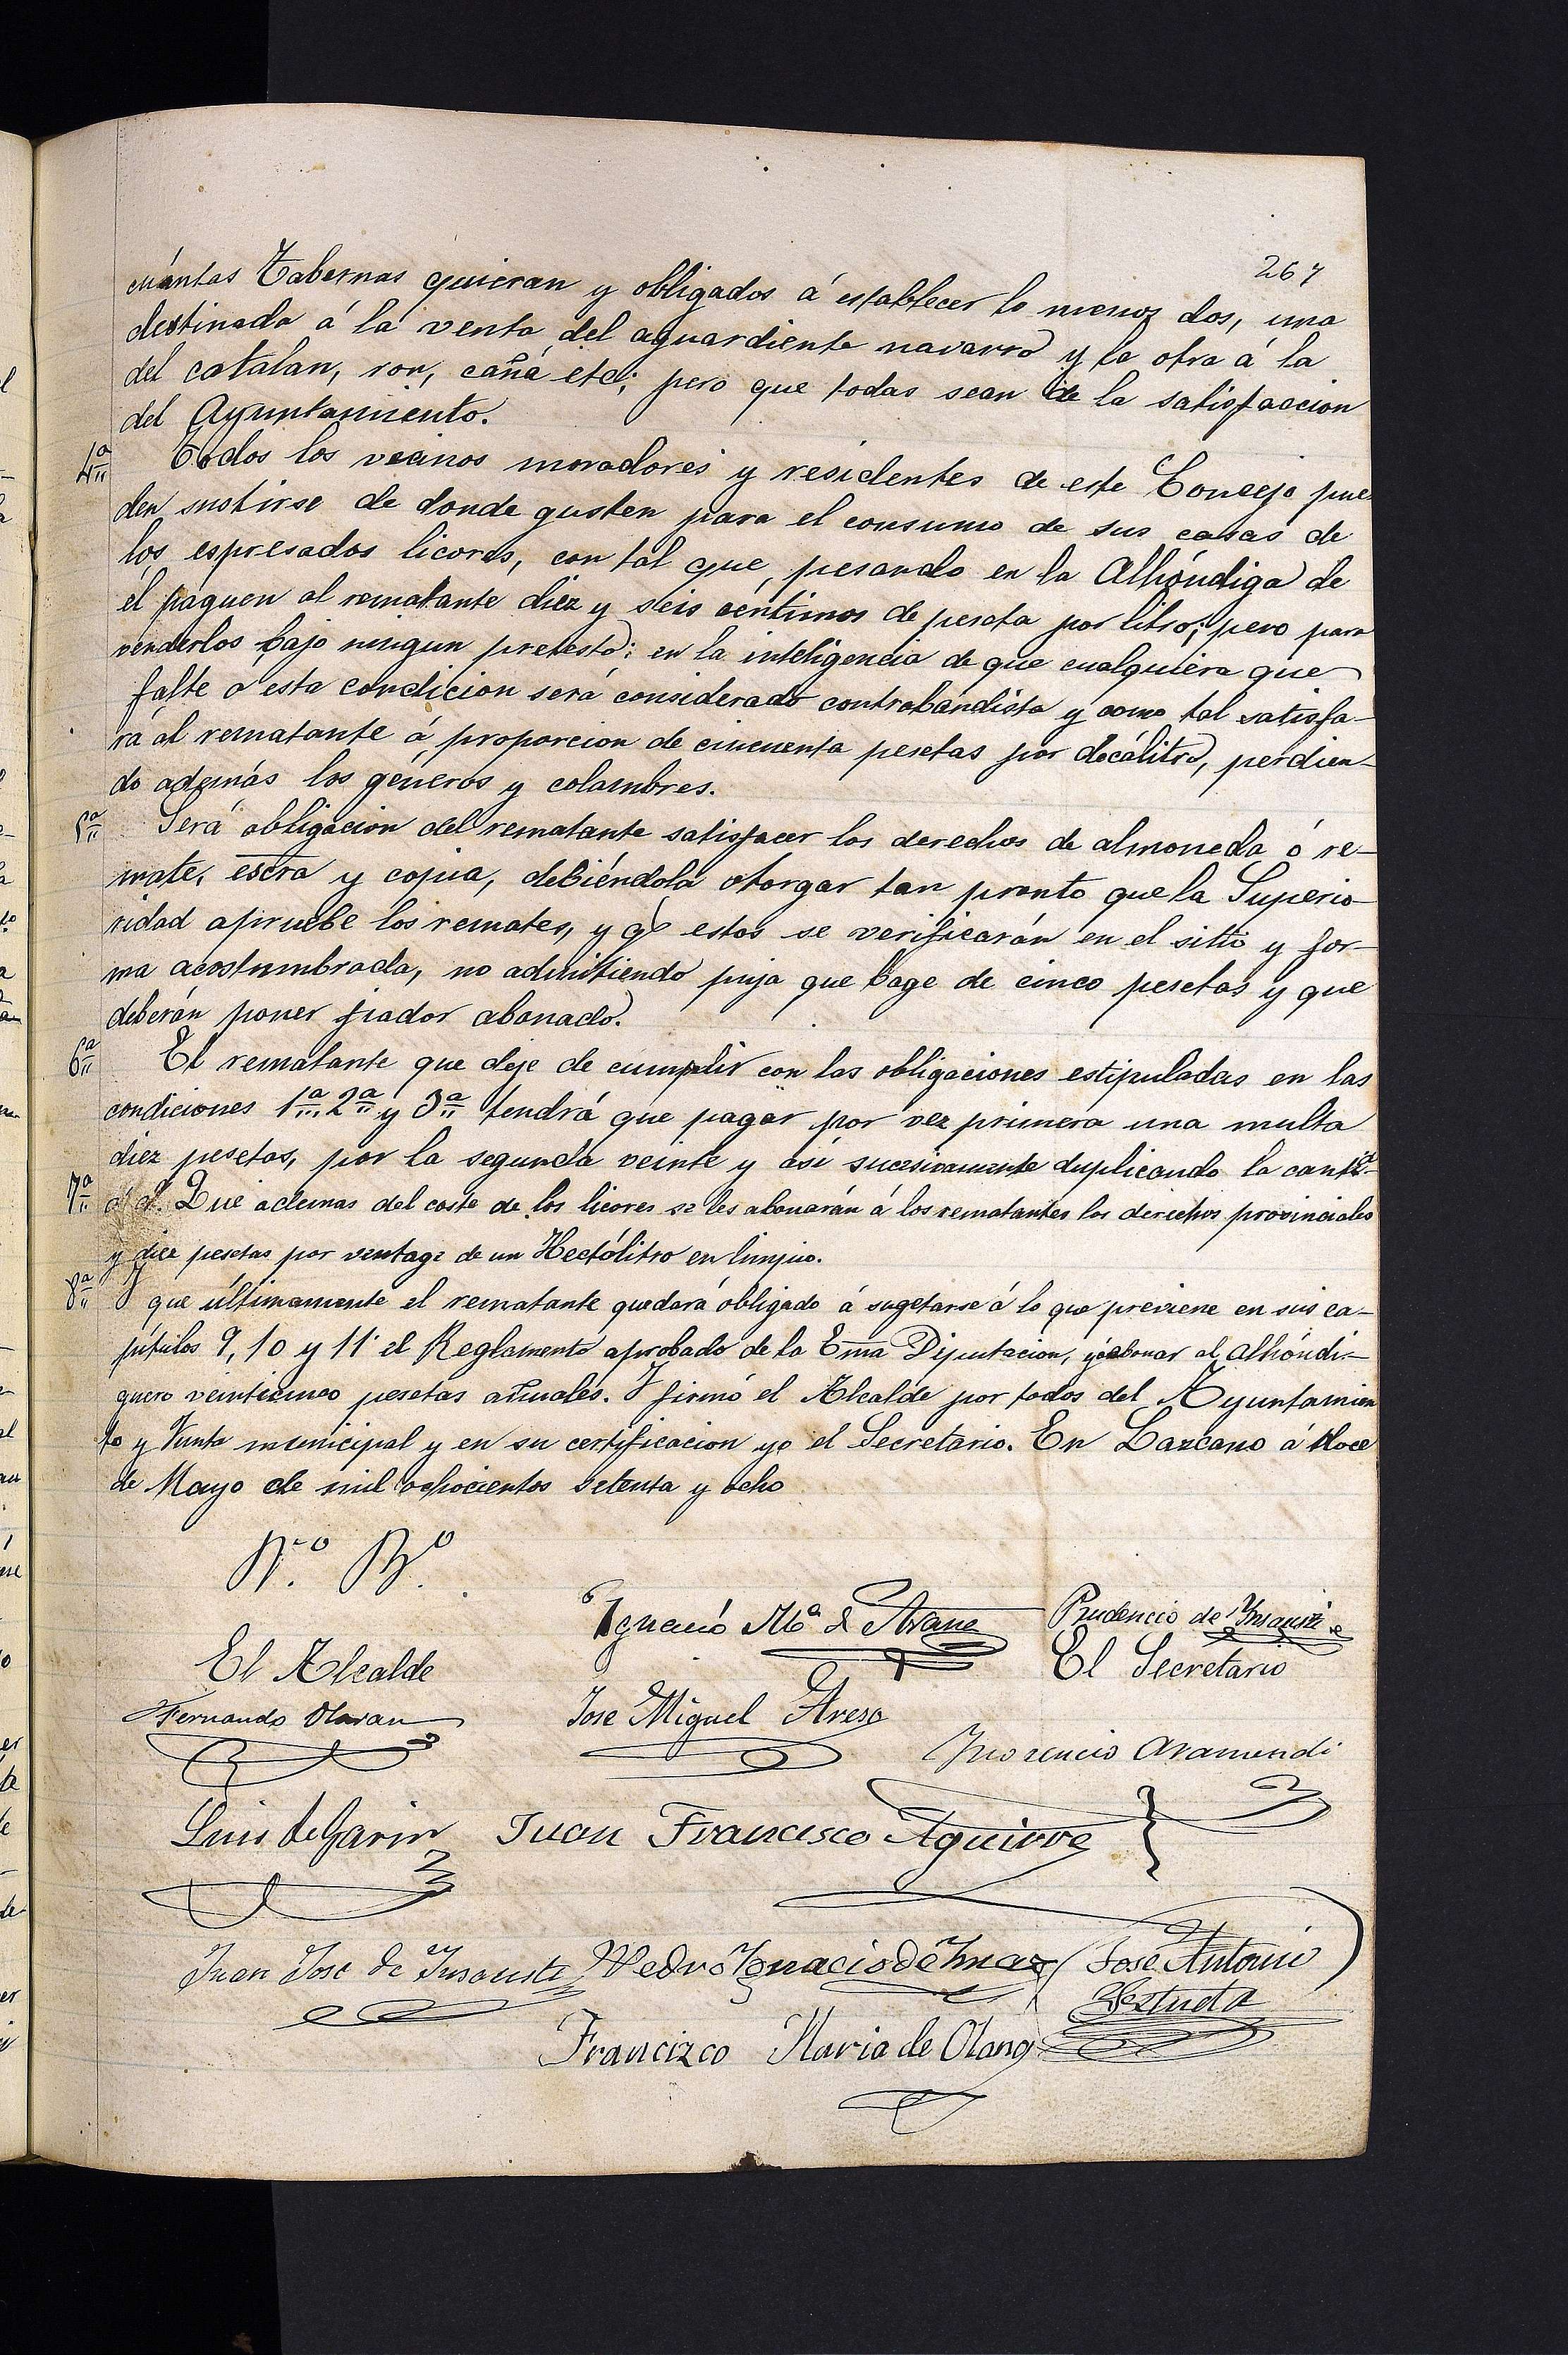 267
cuántas Tabernas quieran y obligados á establecer lo menos dos, una
destinada á la venta del aguardiente navarro y la otra á la
del catalan, ron, caña etc; pero que todas sean de la satisfaccion
del Ayuntamiento.
4ª Todos los vecinos moradores y residentes de este Concejo pue
den surtirse de donde gusten para el consumo de sus casas de
los espresados licores, con tal que, pesando en la Alhóndiga de
él paguen al rematante diez y seis céntimos de peseta por litro; pero para
venderlos bajo ningun pretesto: en la inteligencia de que cualquiera que
falte a esta condicion será considerado contrabandista y como tal satisfa-
rá al rematante á proporcion de cincuenta pesetas por decálitro, perdien-
do además los géneros y colambres.
5ª Será obligacion del rematante satisfacer los derechos de almoneda ó re-
mate, escra y copia, debiéndola otorgar tan pronto que la Superio-
ridad apruebe los remates, y qe estos se verificarán en el sitio y for-
ma acostumbrada, no admitiendo puja que bage de cinco pesetas y que
deberán poner fiador abonado.
6ª El rematante que deje de cumplir con las obligaciones estipuladas en las
condiciones 1ª 2ª y 3ª tendrá que pagar por vez primera una multa
diez pesetas, por la segunda veinte y asi sucesivamente duplicando la canti-
7ª d. Que ademas del coste de los licores se les abonarán á los rematantes los derechos provinciales
y diez pesetas por ventage de un Hectólitro en limpio.
8ª Y que últimamente el rematante quedará obligado á sugetarse á lo que previene en sus ca-
pítulos 9, 10 y 11 el Reglamento aprobado de la Ema Diputacion, y abonar al alhóndi-
guero veinticinco pesetas anuales. Y firmó el Alcalde por todos del Ayuntamien
to y Junta municipal y en su certificacion yo el Secretario. En Lazcano á doce
de Mayo de mil ochocientos setenta y ocho
Vº Bº
Ignacio Mª de Arana Prudencio de Insausti
El Alcalde El Secretario
Fernando Olaran Jose Miguel Areso
Inorencio Aramendi
Luis de Garin Juan Francisco Aguirre
Juan Jose de Insausti Pedro Ygnacio de Imaz José Antonio
Francizco Maria de Olano